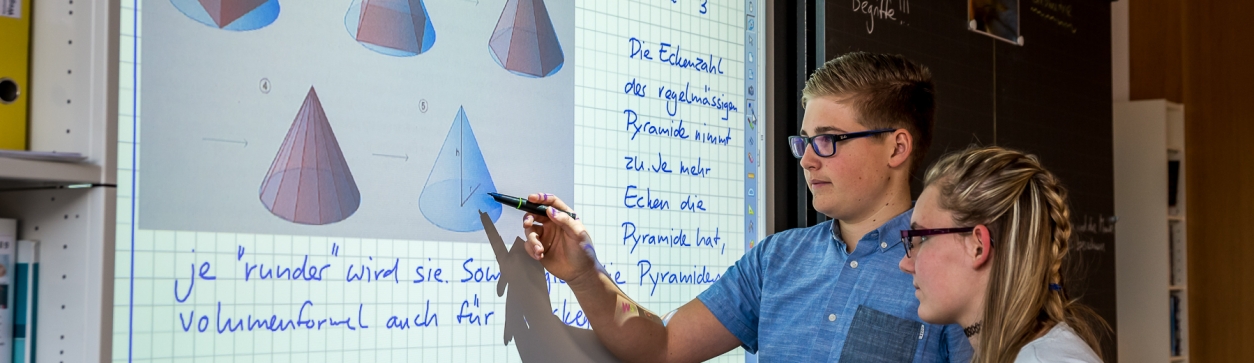 3
④
⑤
h
r
Die Eckenzahl
des regelmässigen
Pyramide nimmt
zu. Je mehr
Ecken die
Pyramide hat,
je "runder" wird sie.
volumenformel auch für
Begriffe!!!